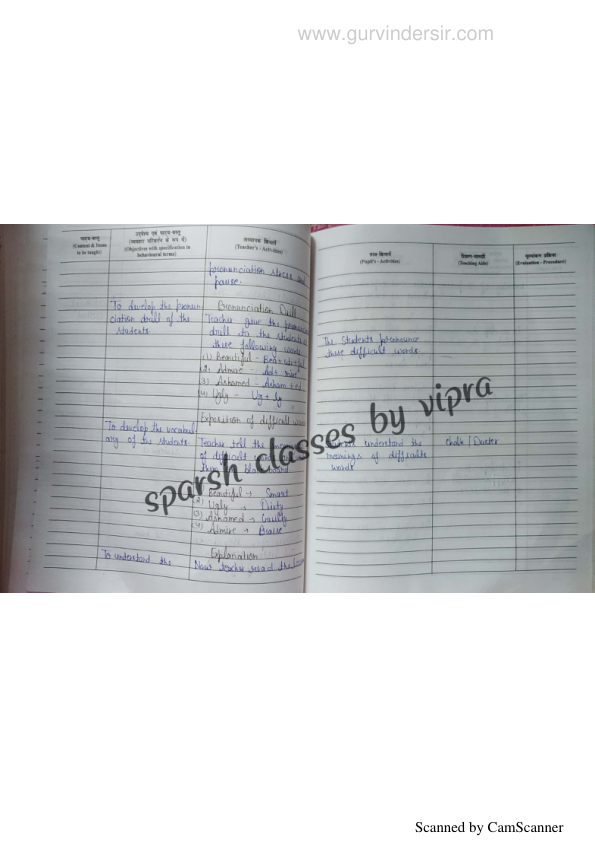 www.gurvindersir.com
पाठ्य-वस्तु
(Content & Items
to be taught)
उद्देश्य एवं पाठ्य-वस्तु
(व्यवहार परिवर्तन के रूप में)
(Objectives with specification in
behavioural terms)
(Teacher's - Activities)
pronunciation stress and
pause.
To develop the pronun
ciation drill of the
students.
Pronunciation Drill
Teacher give the
drill to the students
three following words
(1) Beautiful -
(2) Admire -
(3) Ashamed -
(4) Ugly - Ug + ly
Exposition of difficult
To develop the vocabul
ary of the students.
Teacher tell the
of difficult
Beautiful → Smart
(2) Ugly → Dirty
(3) Ashamed → Guilty
(4) Admire →
Explanation
To understand the
Now teacher read the
(Pupil's - Activities)
(Teaching Aids)
मूल्यांकन प्रक्रिया
(Evaluation - Procedure)
The Students pronounce
these difficult words.
understand the
meanings of difficults
words
chalk | Duster
sparsh classes by vipra
Scanned by CamScanner